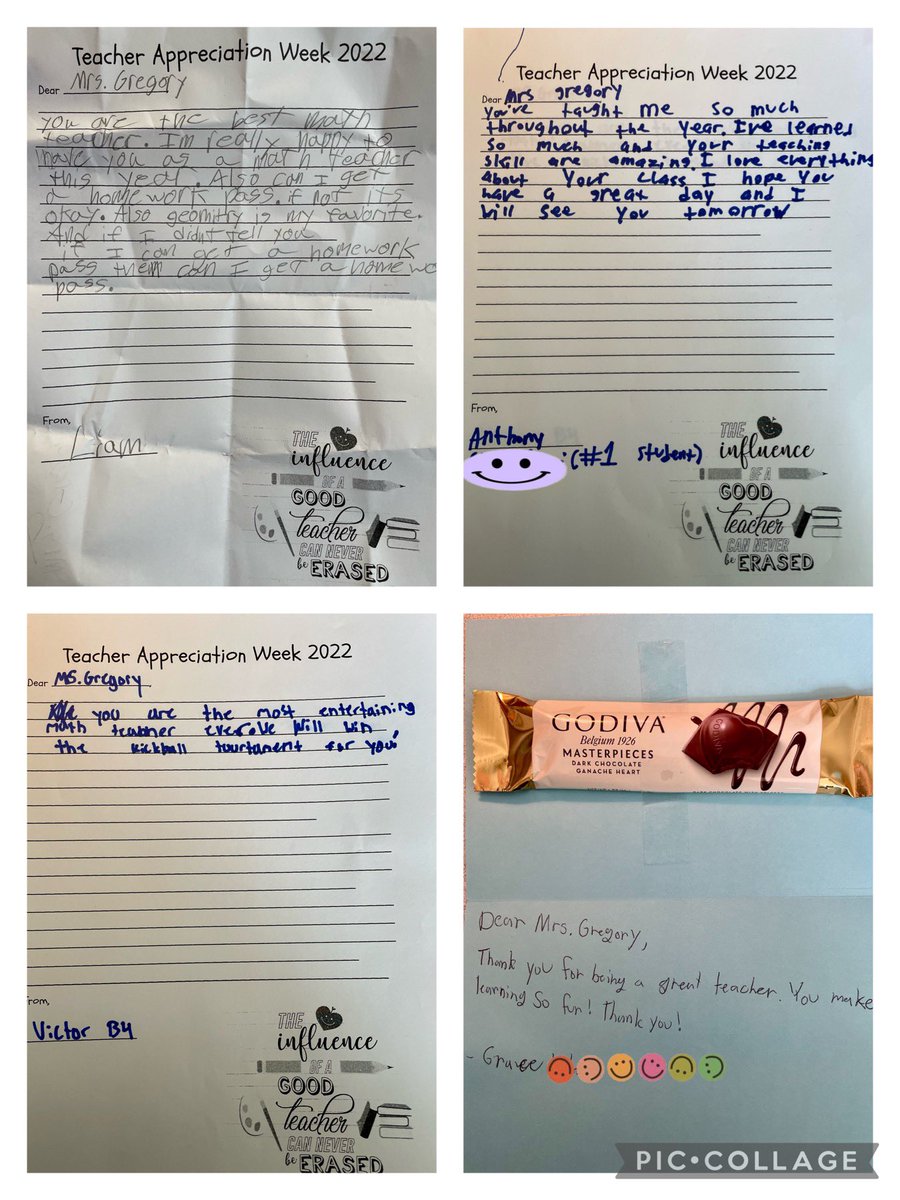 Teacher Appreciation Week 2022
Dear Mrs. Gregory
you are the best math
teacher. I'm really happy to
have you as a math teacher
this year. Also can I get
a homework pass. if not its
okay. Also geomitry is my favorite.
And if I didnt tell you
if I can get a homework
pass then can I get a homewo
pass.
From,
Liam
THE
influence
OF A
GOOD
teacher
CAN NEVER
be ERASED
Teacher Appreciation Week 2022
Dear Mrs gregory
You've taught me so much
throughout the year. I've learned
so much and your teaching
skill are amazing. I love everything
about your class. I hope you
have a great day and I
will see you tomorrow
From,
Anthony
(#1 student)
THE
influence
OF A
GOOD
teacher
CAN NEVER
be ERASED
Teacher Appreciation Week 2022
Dear MS. Gregory
you are the most entertaining
math teacher ever. We will win
the kickball tourtament for you!
From,
Victor B4
THE
influence
OF A
GOOD
teacher
CAN NEVER
be ERASED
GODIVA
Belgium 1926
MASTERPIECES
DARK CHOCOLATE
GANACHE HEART
Dear Mrs. Gregory,
Thank you for being a great teacher. You make
learning so fun! Thank you!
- Grace
PIC•COLLAGE